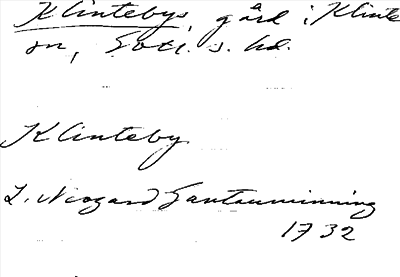 Klintebys, gård i Klinte
sn, Gotl. s. hd.
Klinteby
L. Niogard Gantauminning
1732